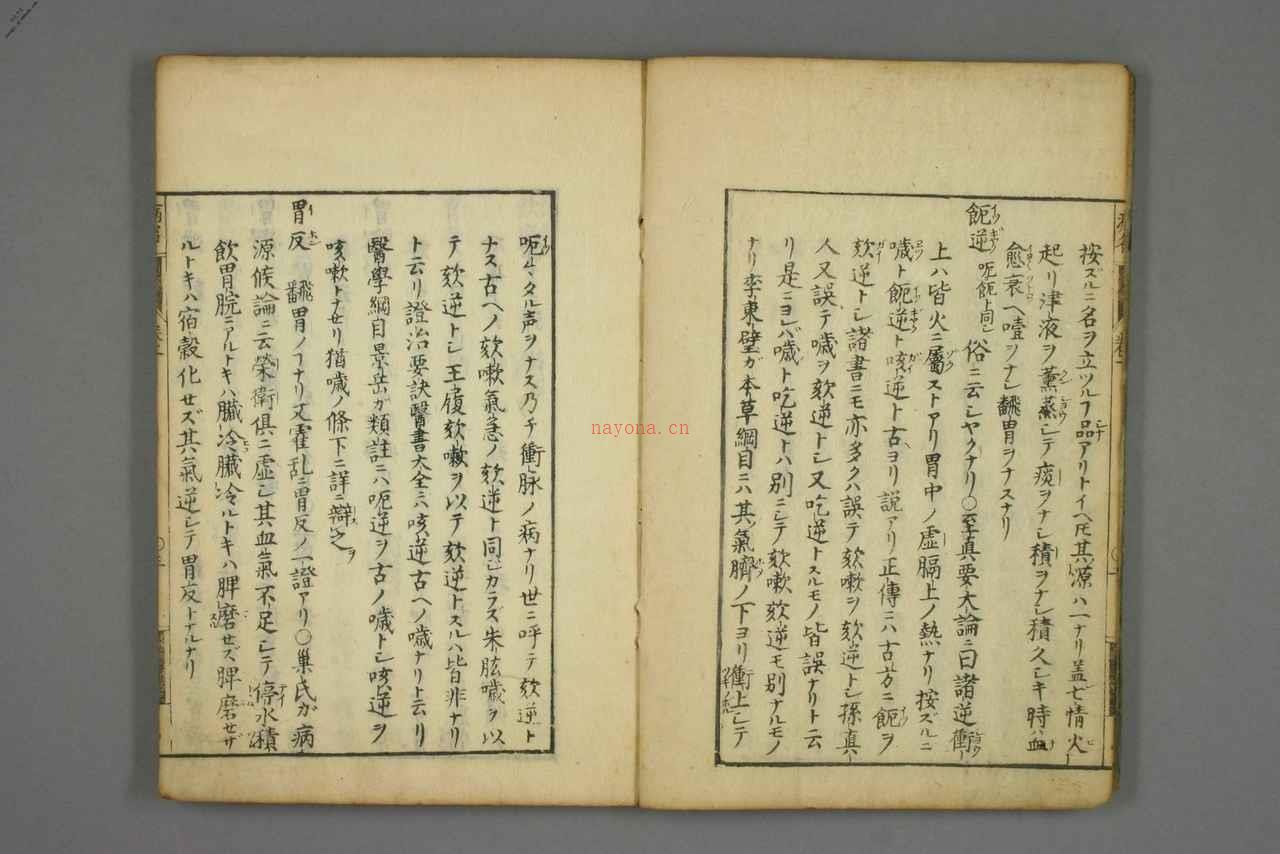 按ズルニ名ヲ立ツルヿ品アリトイヘ𪜈其源ハ一ナリ盖七情火
起リ津液ヲ薫蒸シテ痰ヲナシ積ヲナシ積久シキ時ハ血
愈衰ヘ噎ヲナシ翻胃ヲナスナリ
呃逆 呃䭇ト同シ 俗ニ云シヤクナリ○至真要大論ニ曰諸逆衝
上ハ皆火ニ屬ストアリ胃中ノ虚膈上ノ熱ナリ按ズルニ
噦ト呃逆ト咳逆ト古ヨリ説アリ正傳ニハ古方ニ呃ヲ
欬逆トシ諸書ニモ亦多クハ誤テ欬嗽ヲ欬逆トシ孫真
人又誤テ噦ヲ欬逆トシ又吃逆トスルモノ皆誤ナリト云
リ是ニヨレバ噦ト吃逆トハ別ニシテ欬嗽欬逆モ別ナルモノ
ナリ李東璧ガ本草綱目ニハ其氣臍ノ下ヨリ衝上シテ
呃々タル声ヲナス乃チ衝脉ノ病ナリ世ニ呼テ欬逆ト
ナス古ヘノ欬嗽氣急ノ欬逆ト同シカラズ朱肱噦ヲ以
テ欬逆トシ王履欬嗽ヲ以テ欬逆トスルハ皆非ナリ
ト云リ證治要訣醫書大全ニハ咳逆古ヘノ噦ナリト云リ
醫學綱目景岳ガ類註ニハ呃逆ヲ古ノ噦トシ咳逆ヲ
咳嗽トナセリ猶噦ノ條下ニ詳ニ辯之ヲ
胃反 翻胃ノヿナリ又霍乱ニ胃反ノ一證アリ○巣氏ガ病
源候論ニ云榮衛俱ニ虚シ其血氣不足シテ停水積
飲胃脘ニアルトキハ臓冷臓冷ルトキハ脾磨セズ脾磨セザ
ルトキハ宿穀化セズ其氣逆シテ胃反トナルナリ
nayona.cn